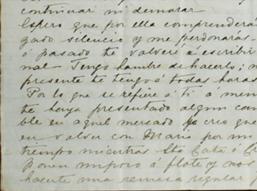 continuar mi demorar
Espero que por ella comprenderá
gado silencio y me perdonarás
ó pasado te volveré á escribir
nal Tengo hambre de hacerlo; 
presente te tengo á todas horas
Por lo que se refiere á ti á men
te haya presentado algun cam
ble en aquel mercado creo que
en volver con Mario por mi
tiempo mientras Sto
á flote y nos
hacerte una remesa regular